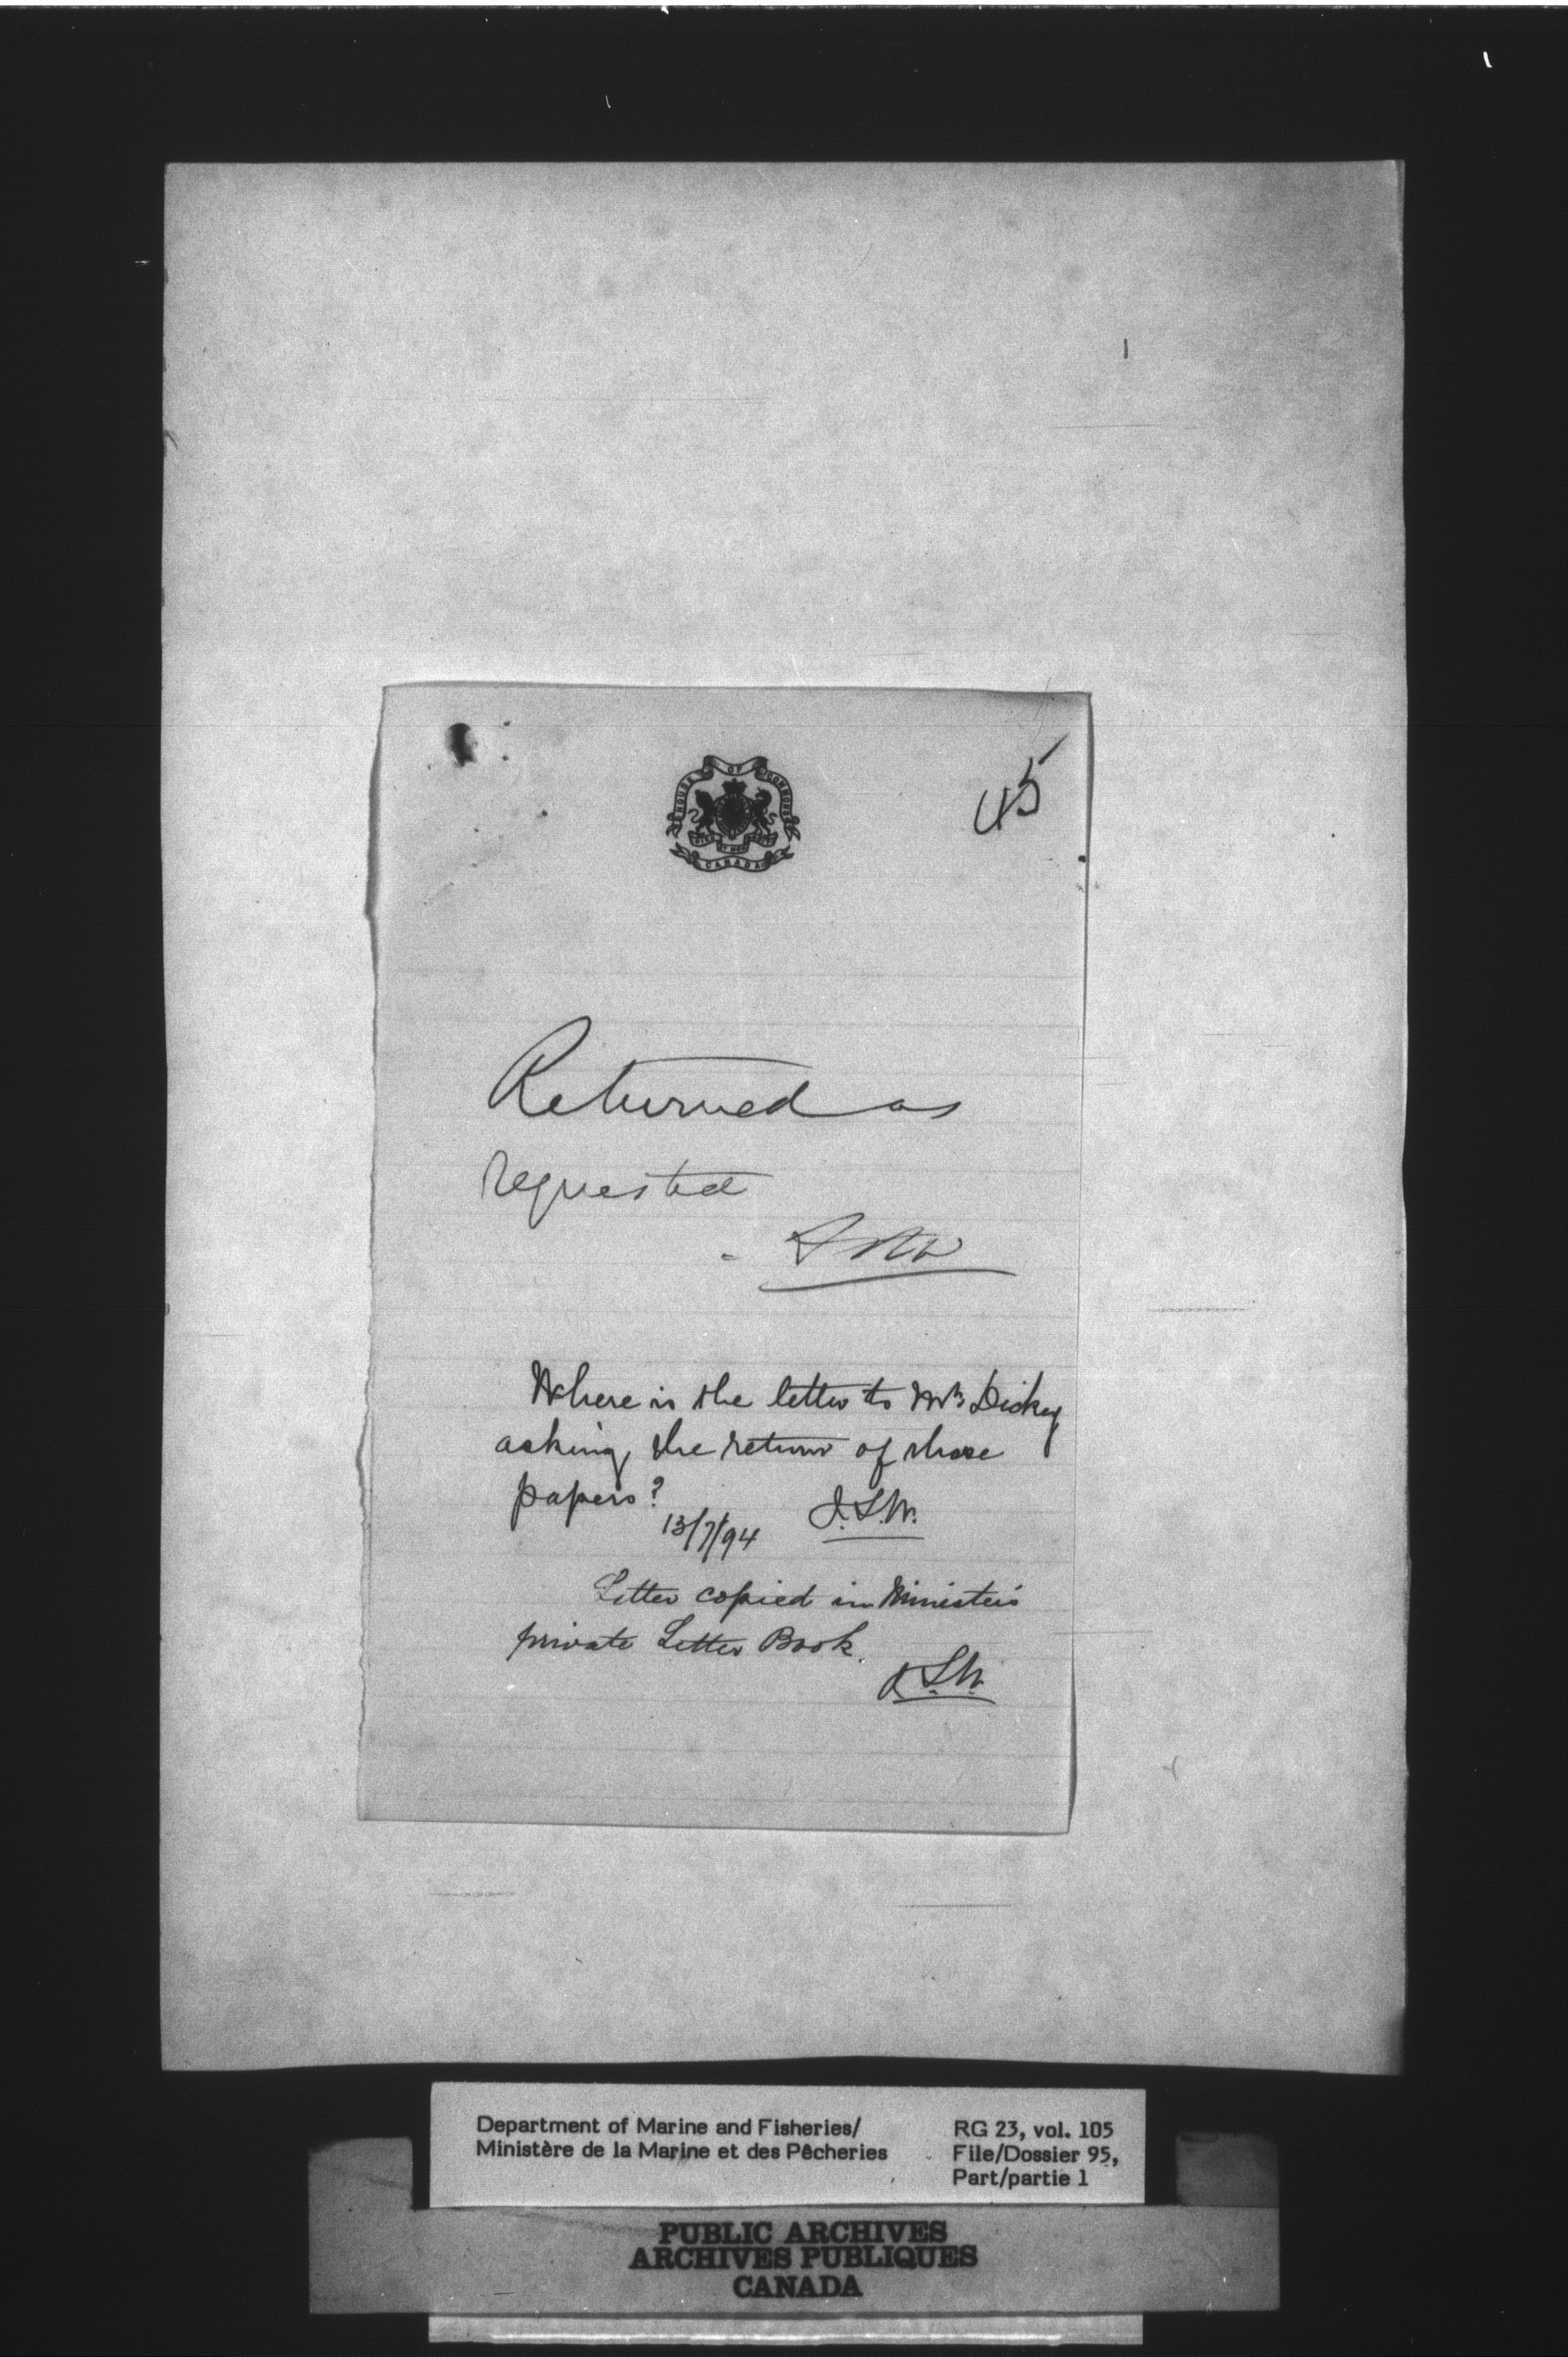 HOUSE OF COMMONS
CANADA
45
Returned as
requested
Where is the letter to Mr. Dickey
asking the return of these
papers?
13/7/94 J.S.W.
Letter copied in Minister's
private Letter Book.
J.S.W.
Department of Marine and Fisheries/
Ministère de la Marine et des Pêcheries
RG 23, vol. 105
File/Dossier 95,
Part/partie 1
PUBLIC ARCHIVES
ARCHIVES PUBLIQUES
CANADA